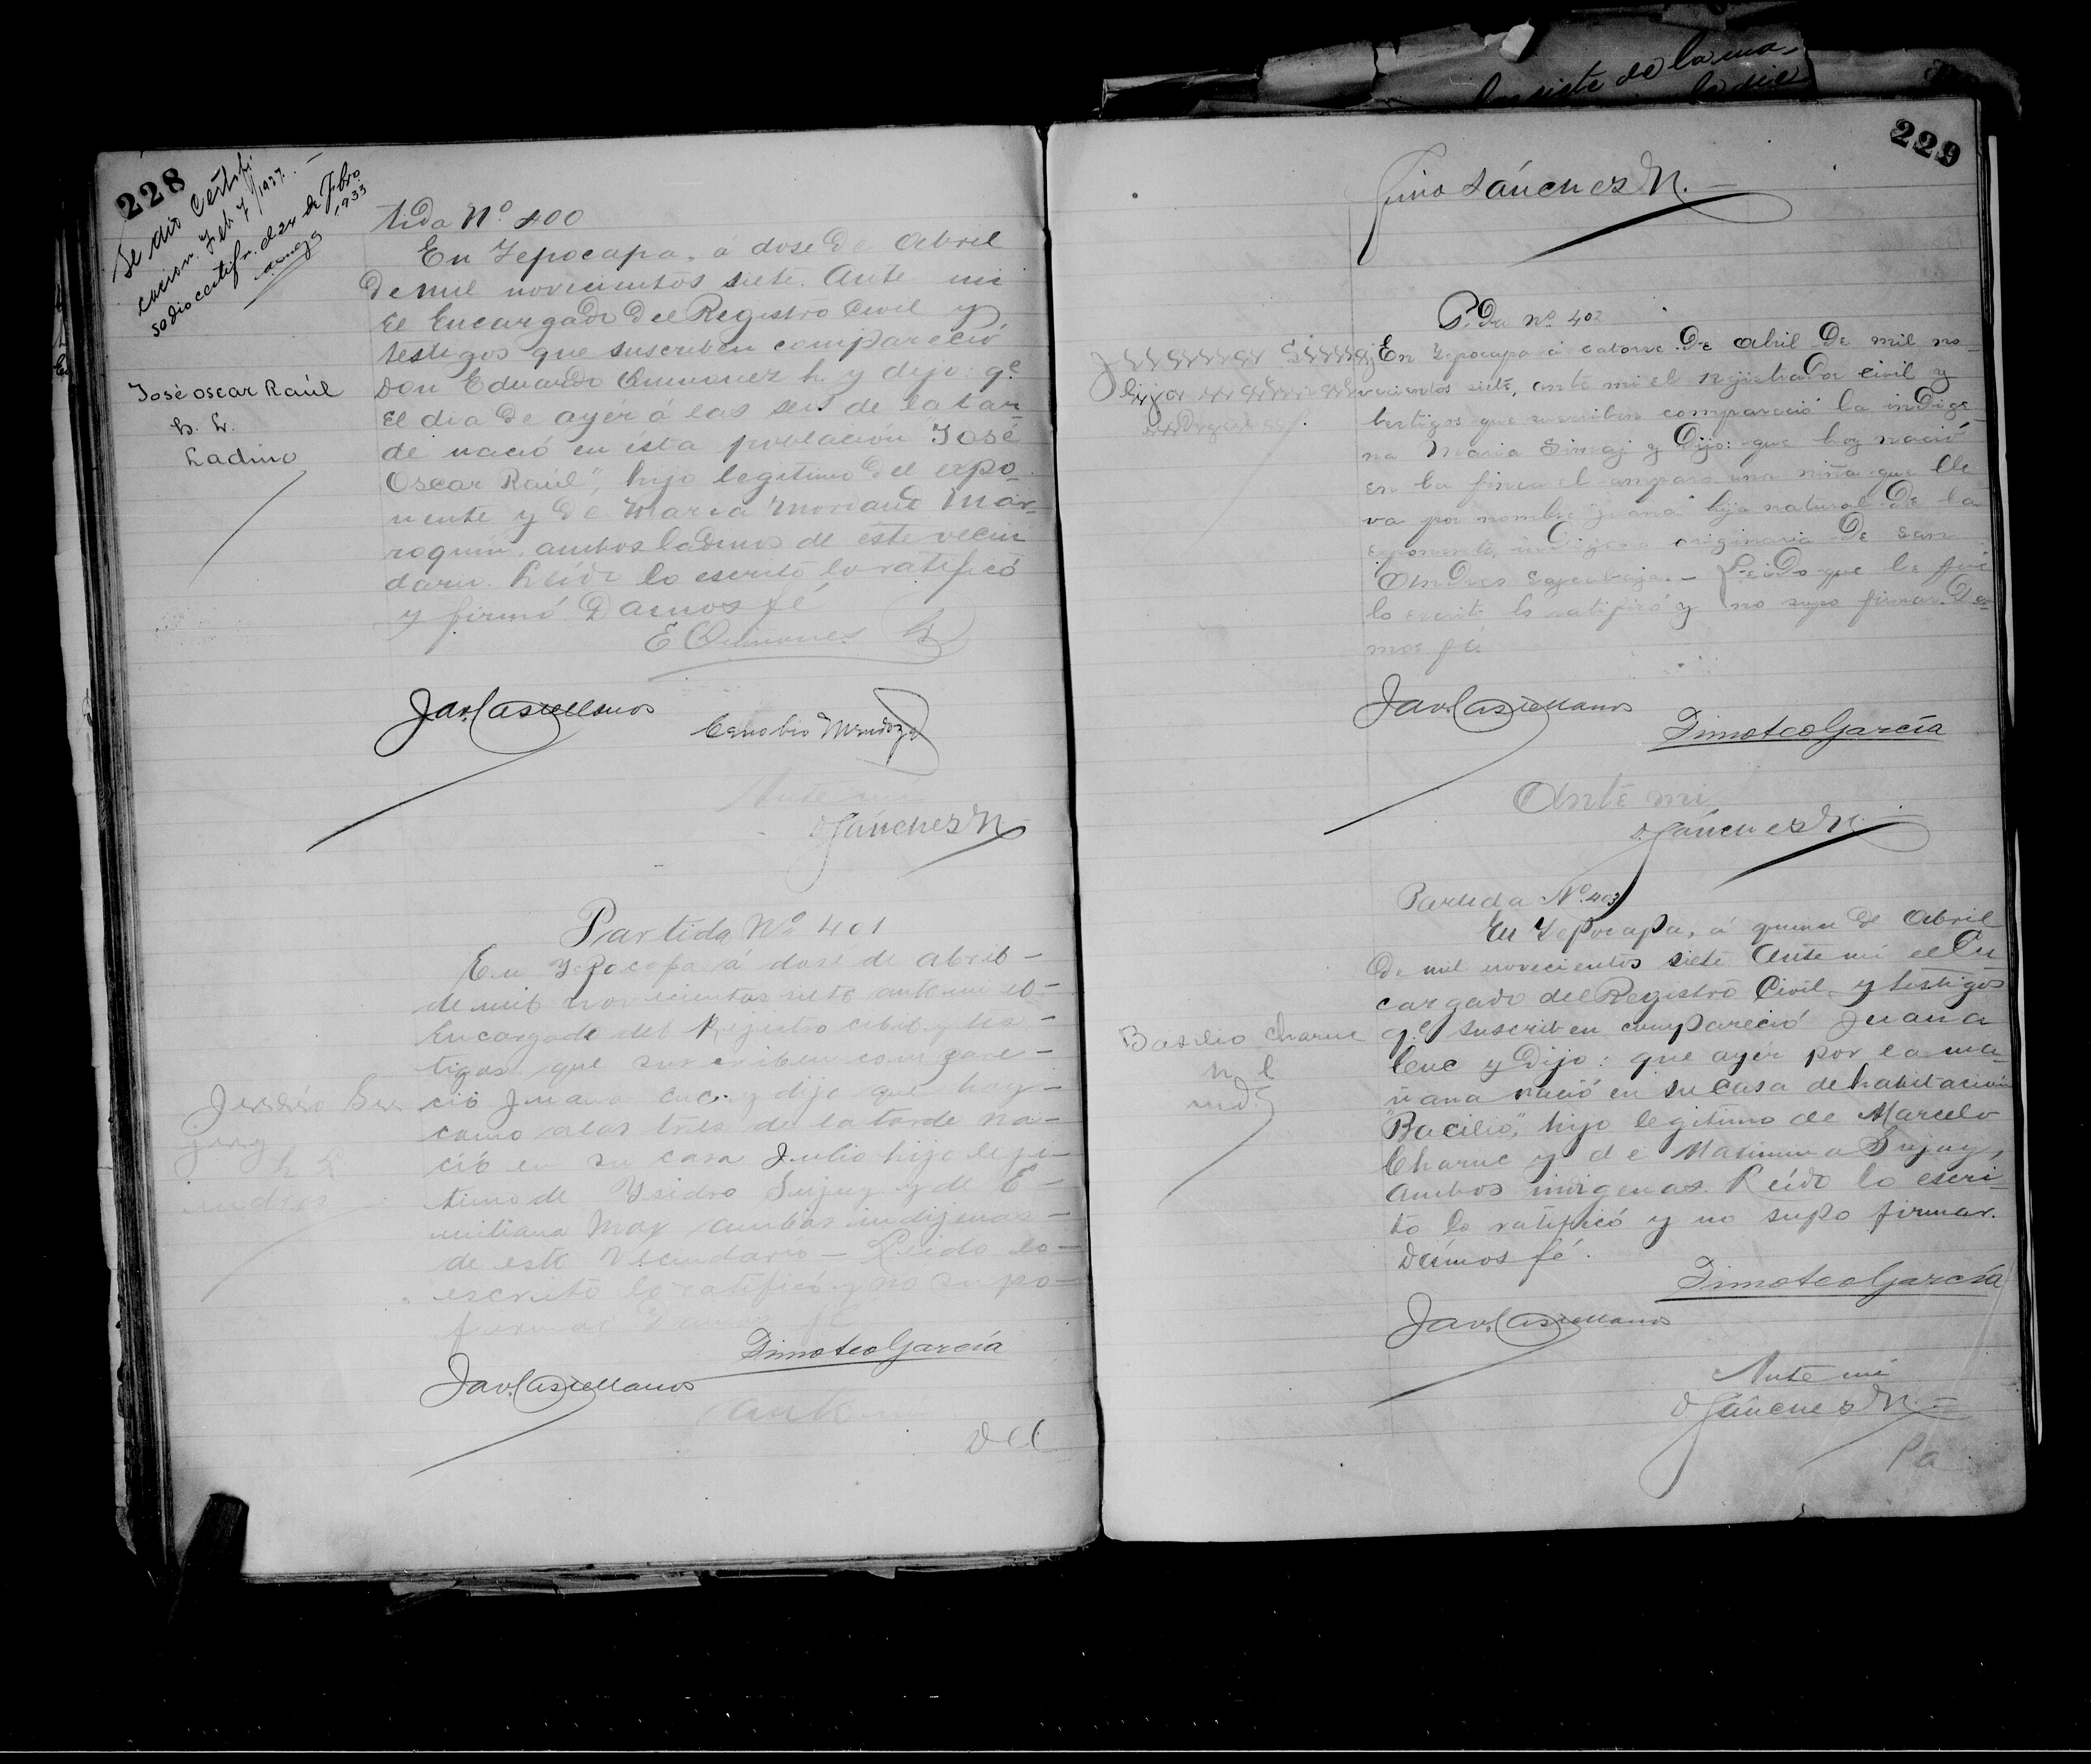 228
Se dió Certifi
cacion. Feb 7/1937.
se dio certifn. el 24 de Fbro.
1933
tida No 400
En Yepocapa, á dose de Abril
de mil novecientos siete. Ante mi
el Encargado del Registro Civil y
testigos que suscriben compareció
Don Eduardo Quinonez h. y dijo: qe
el dia de ayér á las seis de la tar
de nació en ésta población "José
Oscar Raúl", hijo legitimo del expo-
nente y de Maria Marroquin
José Oscar Raúl
h. L.
Ladino
roquin, ambos ladinos de éste vecin
dario. Leído lo escrito lo ratificó
y firmó. Damos fé
E Quinonez h
Jav. Castellanos
Cenobio Mendoza
Ante mi
D Sánches N
Partida No 401
En Yepocapa á dose de abril -
de mil novecientos siete ante mi el -
Encargado del Rejistro cibil y tes -
tigos que suscriben compare -
ció Juana Cuc. y dijo que hoy -
como alas tres de la tarde na -
ció en su casa Julio hijo leji -
timo de Ysidro Sujuy y de E -
miliana Mox ambos indijenas -
de este vecindario - Leido lo -
escrito lo ratificó y no supo -
firmar Damos fé
h L
indios
Timoteo García
Jav. Castellanos
Ante
229
Sánches N.
Pda No 402
En Yepocapa á catorse de abril de mil no-
vecientos siete, ante mi el rejistrador civil y
testigos que suscriben compareció la indige-
na Maria Simaj y dijo: que hoy nació
en la finca el amparo una niña que lle
va por nombre "Juana" hija natural de la
exponente, indijena originaria de San
Andres . - Leido que le fué
lo escrito lo ratificó y no supo firmar. Da-
mos fé.
Juana Simaj
hija natural
indigena
Jav. Castellanos
Timoteo García
Ante mi
D. Sánches N.
Partida No. 403
En Yepocapa, á quince de Abril
de mil novecientos siete Ante mi el En
cargado del Registro Civil y testigos
qe suscriben compareció Juana
Cuc y dijo: que ayér por la ma-
ñana nació en su casa de habitación
"Bacilio," hijo legitimo de Marcelo
Charuc y de Maximina Sujuy,
ambos indigenas. Leído lo escri-
to lo ratificó y no supo firmar.
Damos fé.
Basilio Charuc
h l
ind.
Timoteo García
Jav. Castellanos
Ante mi
D Sánches N.
Pa